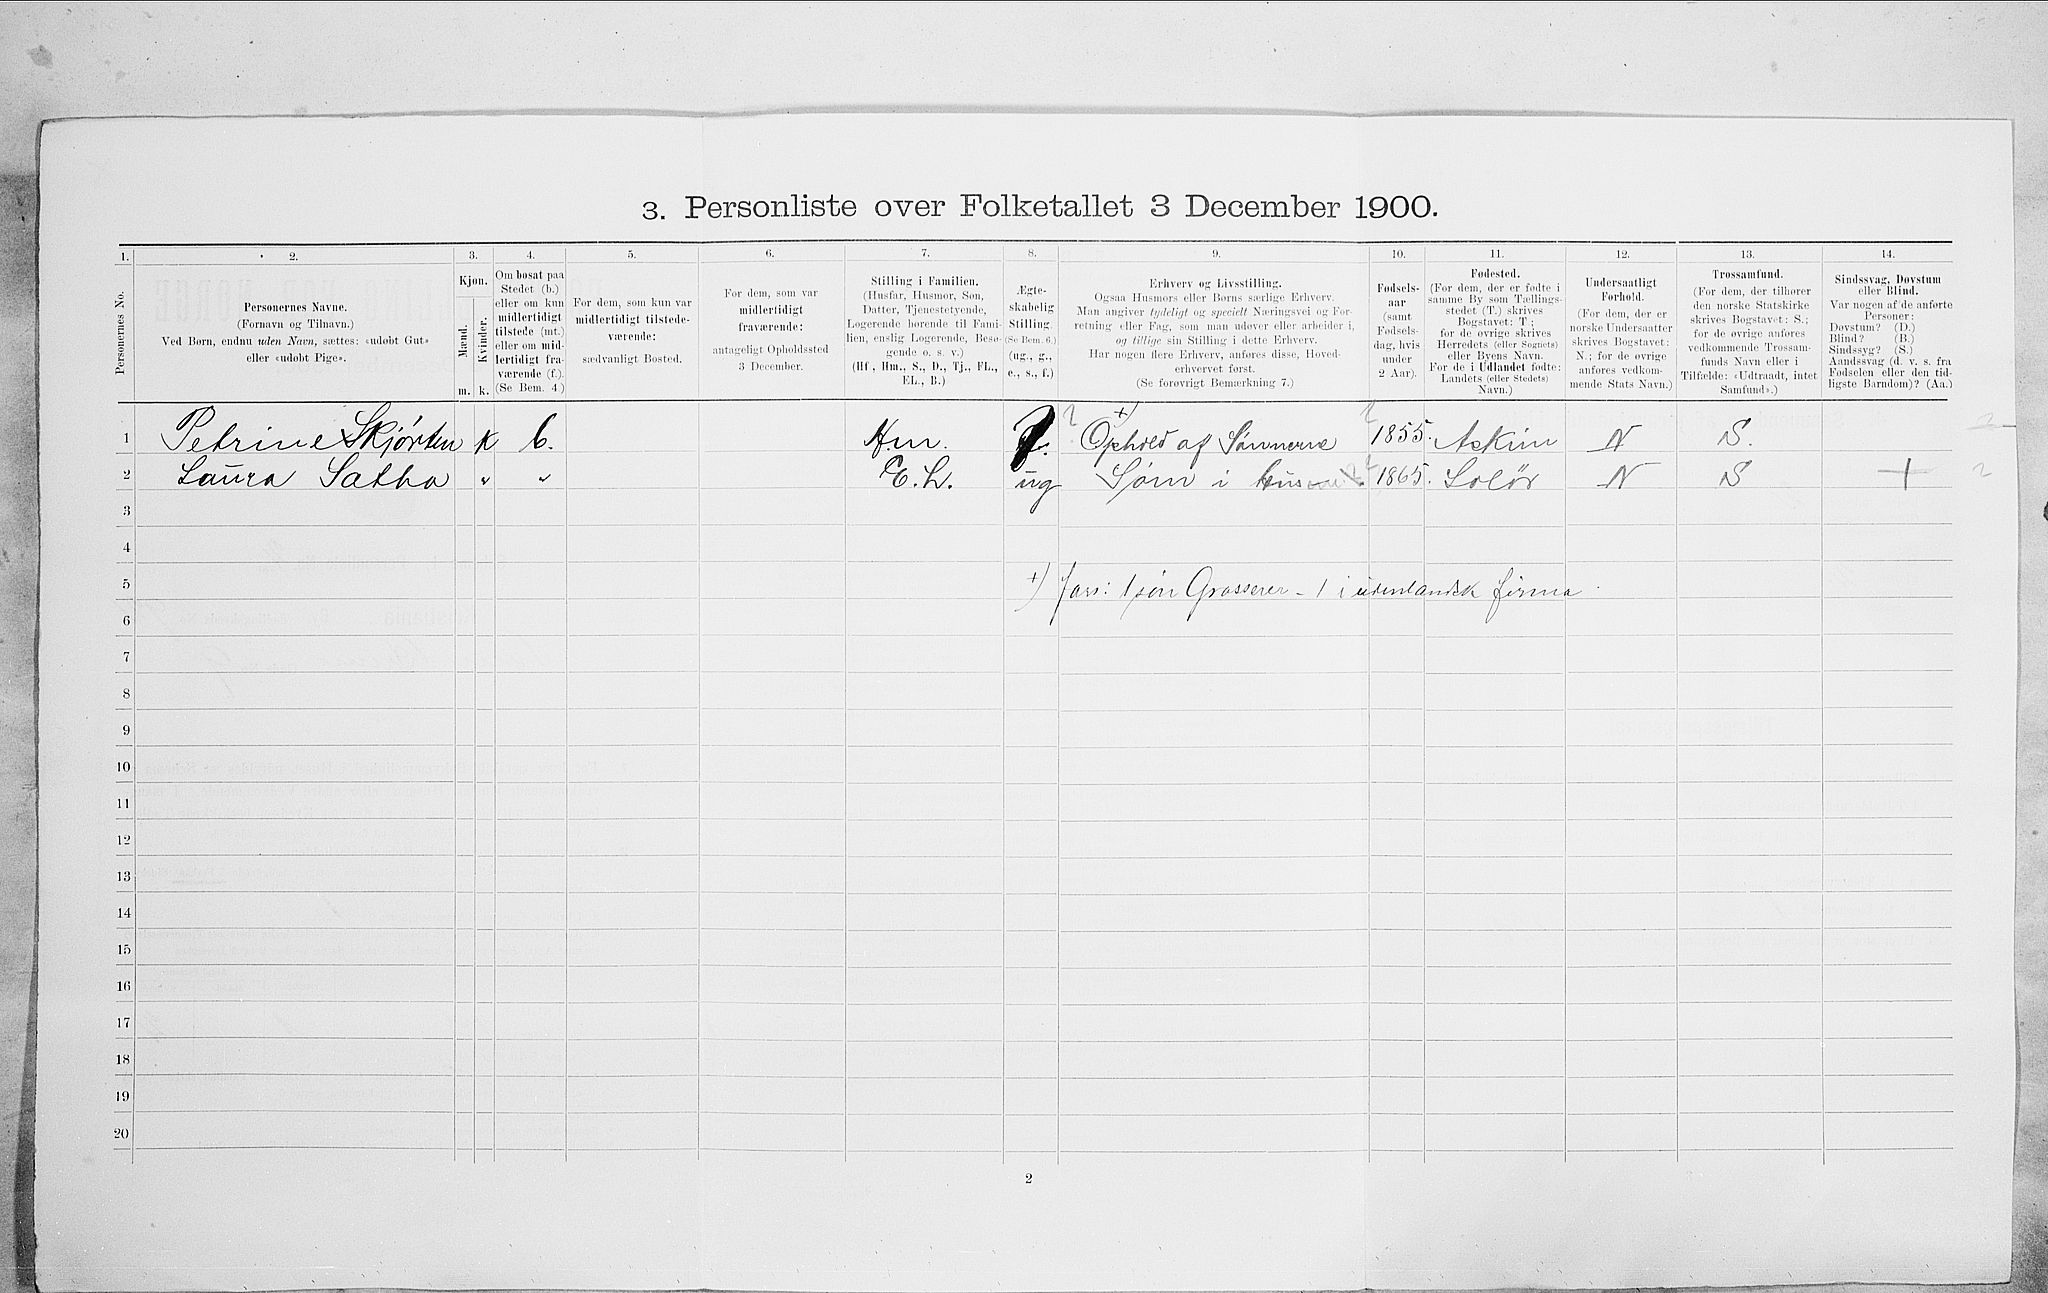 3. Personliste over Folketallet 3 December 1900.
1. 2. 3. 4. 5. 6. 7. 8. 9. 10. 11. 12. 13. 14.
Personernes No.
Personernes Navne.
(Fornavn og Tilnavn.)
Ved Børn, endnu uden Navn, sættes: «udøbt Gut»
eller «udøbt Pige».
Kjøn.
Mænd.
Kvinder.
m. k.
Om bosat paa
Stedet (b.)
eller om kun
midlertidigt
tilstede (mt.)
eller om mid-
lertidigt fra-
værende (f.).
(Se Bem. 4.)
For dem, som kun var
midlertidigt tilstede-
værende:
sædvanligt Bosted.
For dem, som var
midlertidigt
fraværende:
antageligt Opholdssted
3 December.
Stilling i Familien.
(Husfar, Husmor, Søn,
Datter, Tjenestetyende,
Logerende hørende til Fami-
lien, enslig Logerende, Besø-
gende o. s. v.)
(Hf., Hm., S., D., Tj., FL.,
EL., B.)
Ægte-
skabelig
Stilling.
(Se Bem. 6.)
(ug., g.,
e., s., f.)
Erhverv og Livsstilling.
Ogsaa Husmors eller Børns særlige Erhverv.
Man angiver tydeligt og specielt Næringsvei og For-
retning eller Fag, som man udøver eller arbeider i,
og tillige sin Stilling i dette Erhverv.
Har nogen flere Erhverv, anføres disse, Hoved-
erhvervet først.
(Se forøvrigt Bemærkning 7.)
Fødsels-
aar
(samt
Fødsels-
dag, hvis
under
2 Aar).
Fødested.
(For dem, der er fødte i
samme By som Tællings-
stedet (T.) skrives
Bogstavet: T.;
for de øvrige skrives
Herredets (eller Sognets)
eller Byens Navn.
For de i Udlandet fødte:
Landets (eller Stedets)
Navn.)
Undersaatligt
Forhold.
(For dem, der er
norske Undersaatter
skrives Bogstavet:
N.; for de øvrige
anføres vedkom-
mende Stats Navn.)
Trossamfund.
(For dem, der tilhører
den norske Statskirke
skrives Bogstavet: S.;
for de øvrige anføres
vedkommende Trossam-
funds Navn eller i
Tilfælde: «Udtraadt, intet
Samfund».)
Sindssvag, Døvstum
eller Blind.
Var nogen af de anførte
Personer:
Døvstum? (D.)
Blind? (B.)
Sindssyg? (S.)
Aandssvag (d. v. s. fra
Fødselen eller den tid-
ligste Barndom)? (Aa.)
1 Petrine Skjørten k b. Hm. +) Ophold af Sønnerne 1855. Askim N S.
2 Laura Sætha " " E. L. ug Søm i 1865. Solør N S +
3
4
5 +) Jars: 1 søn Grosserer - 1 i udenlandsk firma
6
7
8
9
10
11
12
13
14
15
16
17
18
19
20
2